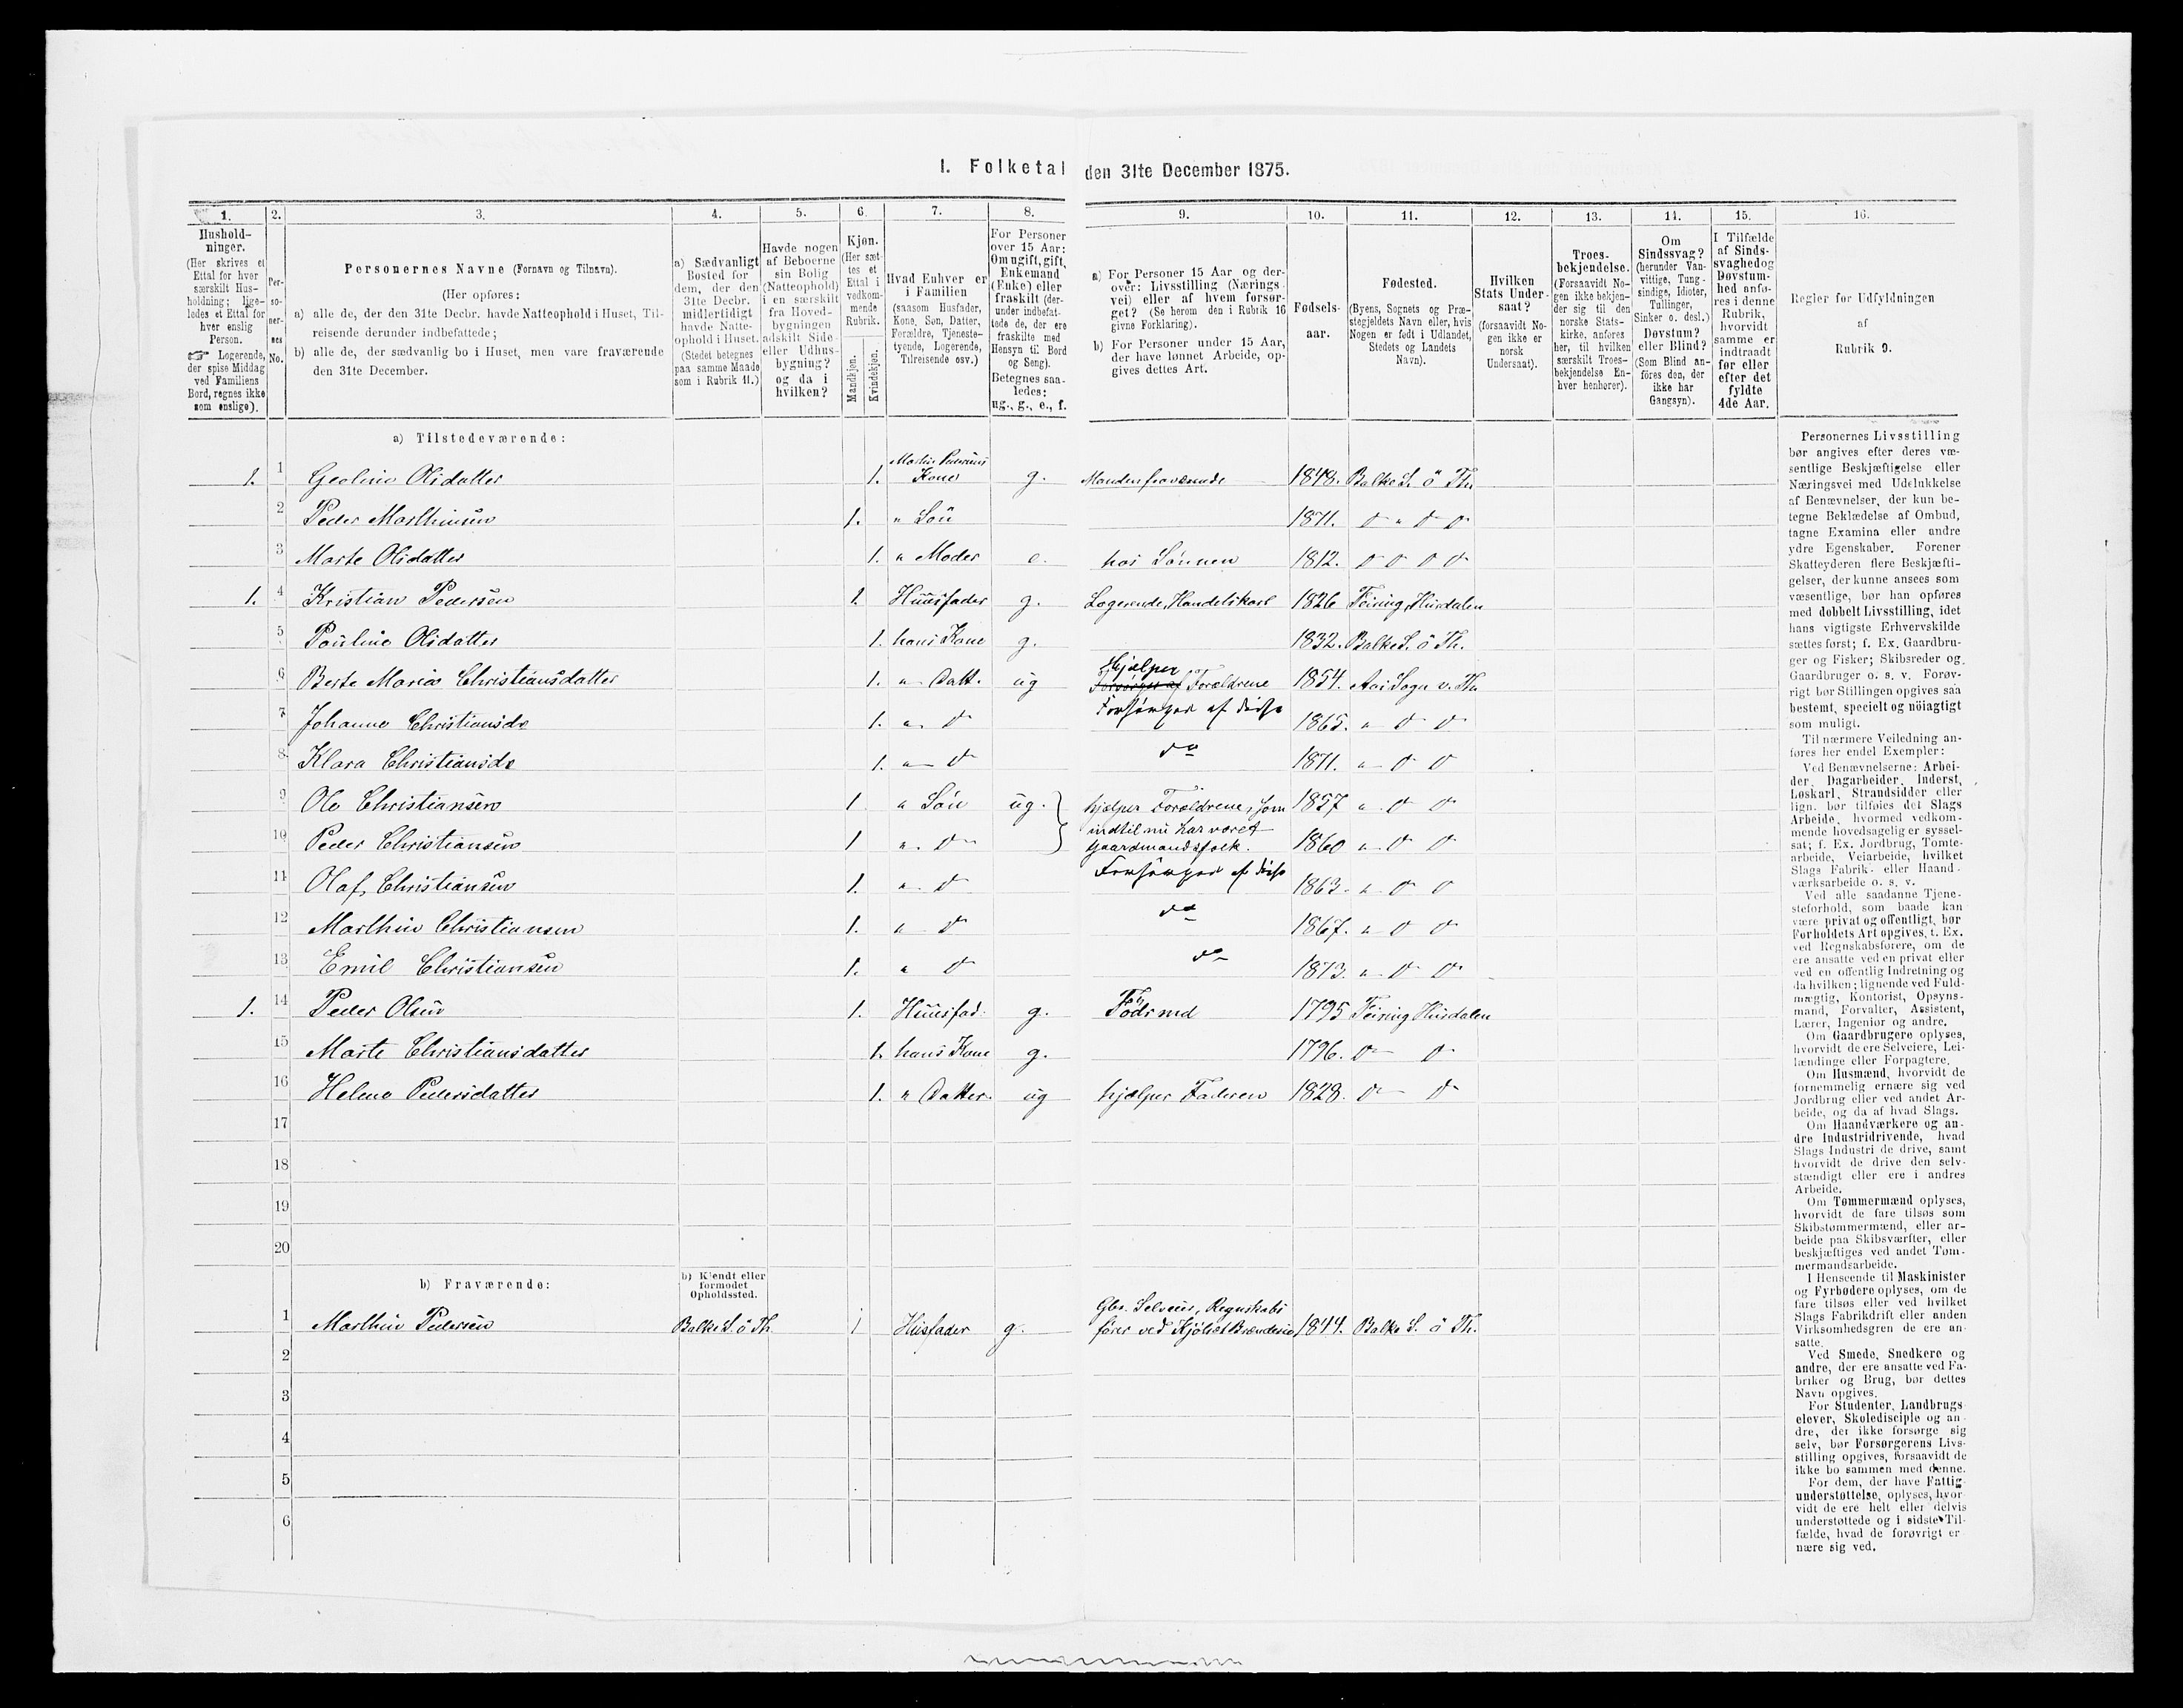 I. Folketal den 31te December 1875.
1. 2. 3. 4. 5. 6. 7. 8. 9. 10. 11. 12. 13. 14. 15. 16.
Hushold-
ninger.
(Her skrives et
Ettal for hver
særskilt Hus-
holdning; lige-
ledes et Ettal for
hver enslig
Person.
☞ Logerende,
der spise Middag
ved Familiens
Bord, regnes ikke
som enslige).
Per-
so-
ner-
nes
No.
Personernes Navne (Fornavn og Tilnavn).
(Her opføres:
a) alle de, der den 31te Decbr. havde Natteophold i Huset, Til-
reisende derunder indbefattede;
b) alle de, der sædvanlig bo i Huset, men vare fraværende
den 31te December.
a) Sædvanligt
Bosted for
dem, der den
31te Decbr.
midlertidigt
havde Natte-
ophold i Huset.
(Stedet betegnes
paa samme Maade
som i Rubrik 11.)
Havde nogen
af Beboerne
sin Bolig
(Natteophold)
i en særskilt
fra Hoved-
bygningen
adskilt Side-
eller Udhus-
bygning?
og da i
hvilken?
Kjøn.
(Her sæt-
tes et
Ettal i
vedkom-
mende
Rubrik.
Mandkjøn.
Kvindekjøn.
Hvad Enhver er
i Familien
(saasom Husfader,
Kone, Søn, Datter,
Forældre, Tjeneste-
tyende, Logerende,
Tilreisende osv.)
For Personer
over 15 Aar:
Om ugift, gift,
Enkemand
(Enke) eller
fraskilt (der-
under indbefat-
tede de, der ere
fraskilte med
Hensyn til Bord
og Seng).
Betegnes saa-
ledes:
ug., g., e., f.
a) For Personer 15 Aar og der-
over: Livsstilling (Nærings-
vei) eller af hvem forsør-
get? (Se herom den i Rubrik 16
givne Forklaring).
b) For Personer under 15 Aar,
der have lønnet Arbeide, op-
gives dettes Art.
Fødsels-
aar.
Fødested.
(Byens, Sognets og Præ-
stegjeldets Navn eller, hvis
Nogen er født i Udlandet,
Stedets og Landets
Navn).
Hvilken
Stats Under-
saat?
(forsaavidt No-
gen ikke er
norsk
Undersaat).
Troes-
bekjendelse.
(Forsaavidt No-
gen ikke bekjen-
der sig til den
norske Stats-
kirke, anføres
her, til hvilken
særskilt Troes-
bekjendelse En-
hver henhører).
Om
Sindssvag?
(herunder Van-
vittige, Tung-
sindige, Idioter,
Tullinger,
Sinker o. desl.)
Døvstum?
eller Blind?
(Som Blind an-
føres den, der
ikke har
Gangsyn).
I Tilfælde
af Sinds-
svaghed og
Døvstum-
hed anfø-
res i denne
Rubrik,
hvorvidt
samme er
indtraadt
før eller
efter det
fyldte
4de Aar.
Regler for Udfyldningen
af
Rubrik 9.
a) Tilstedeværende:
1. 1 Geoline Olsdatter 1. Martin Pedersens Kone g. Manden fraværende 1848. Balke S. ö Th.
2 Peder Marthinsen 1. " Sön 1871. d " d d
3 Marte Olsdatter 1. " Moder e. hos Sönnen 1812. d d d d
1. 4 Kristian Pedersen 1. Huusfader g. Logerende, Handelskarl 1826 Feiring, Hurdalen
5 Pauline Olsdatter 1. hans Kone g. 1832. Balke S. ö Th.
6 Berte Maria Christiansdatter 1. " Datt. ug Hjælper Forsörget af Forældrene 1854. Aas Sogn v. Th.
7 Johanne Christiansd. 1. " d Forsörges af disse 1865. " d d
8 Klara Christiansd. 1. " d do 1871. " d d
9 Ole Christiansen 1. " Sön ug. hjælper Forældrene, som 1857 " d d
indtil nu har været
10 Peder Christiansen 1 " d Gaardmandsfolk. 1860 " d d
11 Olaf Christiansen 1. " d Forsörges af disse 1863. " d d
12 Marthin Christiansen 1. " d do 1867. " d d
13 Emil Christiansen 1. " d do 1873. " d d
1. 14 Peder Olsen 1. Huusfad. g. Födsmd 1795 Feiring Hurdalen
15 Marte Christiansdatter 1. hans Kone g. 1796. d d
16 Helene Pedersdatter 1. " Datter. ug hjælper Faderen 1828. d d
17
18
19
20
b) Fraværende:
b) Kjendt eller
formodet
Opholdssted.
Gbr. Selveier, Regnskabs
1 Marthin Pedersen Balke S. ö Th. 1 Husfader g. förer ved Kjölset Brænderie 1844. Balke S. ö Th.
2
3
4
5
6
Personernes Livsstilling
bør angives efter deres væ-
sentlige Beskjæftigelse eller
Næringsvei med Udelukkelse
af Benævnelser, der kun be-
tegne Beklædelse af Ombud,
tagne Examina eller andre
ydre Egenskaber. Forener
Skatteyderen flere Beskjæfti-
gelser, der kunne ansees som
væsentlige, bør han opføres
med dobbelt Livsstilling, idet
hans vigtigste Erhvervskilde
sættes først; f. Ex. Gaardbru-
ger og Fisker; Skibsreder og
Gaardbruger o. s. v. Forøv-
rigt bør Stillingen opgives saa
bestemt, specielt og nöiagtigt
som muligt.
Til nærmere Veiledning an-
føres her endel Exempler:
Ved Benævnelserne: Arbei-
der, Dagarbeider, Inderst,
Løskarl, Strandsidder eller
lign. bør tilføies det Slags
Arbeide, hvormed vedkom-
mende hovedsagelig er syssel-
sat; f. Ex. Jordbrug, Tomte-
arbeide, Veiarbeide, hvilket
Slags Fabrik- eller Haand-
værksarbeide o. s. v.
Ved alle saadanne Tjene-
steforhold, som baade kan
være privat og offentligt, bør
Forholdets Art opgives, t. Ex.
ved Regnskabsførere, om de
ere ansatte ved en privat eller
ved en offentlig Indretning og
da hvilken; lignende ved Fuld-
mægtig, Kontorist, Opsyns-
mand, Forvalter, Assistent,
Lærer, Ingeniør og andre.
Om Gaardbrugere oplyses,
hvorvidt de ere Selveiere, Lei-
lændinge eller Forpagtere.
Om Husmænd, hvorvidt de
fornemmelig ernære sig ved
Jordbrug eller ved andet Ar-
beide, og da af hvad Slags.
Om Haandværkere og an-
dre Industridrivende, hvad
Slags Industri de drive, samt
hvorvidt de drive den selv-
stændigt eller ere i andres
Arbeide.
Om Tømmermænd oplyses,
hvorvidt de fare tilsøs som
Skibstømmermænd, eller ar-
beide paa Skibsværfter, eller
beskjæftiges ved andet Tøm-
mermandsarbeide.
I Henseende til Maskinister
og Fyrbødere oplyses, om de
fare tilsøs eller ved hvilket
Slags Fabrikdrift eller anden
Virksomhedsgren de ere an-
satte.
Ved Smede, Snedkere og
andre, der ere ansatte ved Fa-
briker og Brug, bør dettes
Navn opgives.
For Studenter, Landbrugs-
elever, Skoledisciple og an-
dre, der ikke forsørge sig
selv, bør Forsørgerens Livs-
stilling opgives, forsaavidt de
ikke bo sammen med denne.
For dem, der have Fattig-
understøttelse, oplyses, hvor-
vidt de ere helt eller delvis
understøttede og i sidste Til-
fælde, hvad de forøvrigt er-
nære sig ved.